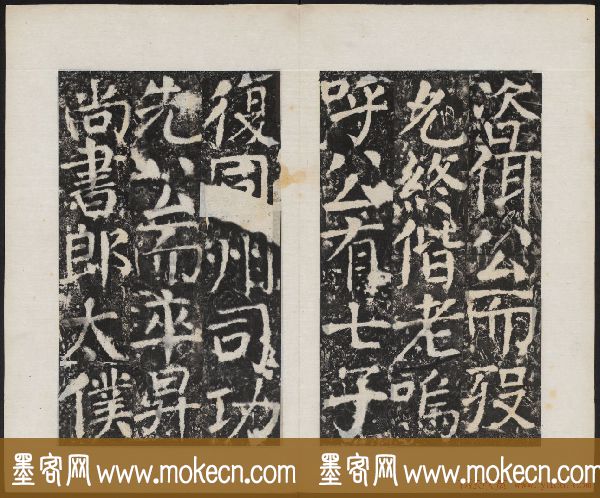 公而歿
允終偕老嗚
呼公有七子
復同州司功
先公而卒昇
尚書郎大僕
墨客网 www.mokecn.com 墨客网 www.mokecn.com